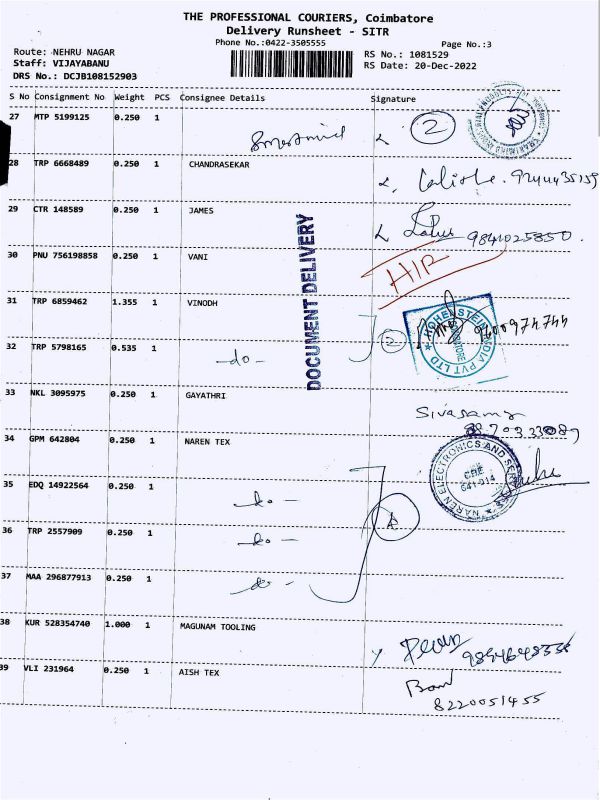 THE PROFESSIONAL COURIERS, Coimbatore
Delivery Runsheet - SITR
Phone No.:0422-3505555
Page No.:3
Route: NEHRU NAGAR
RS No.: 1081529
Staff: VIJAYABANU
RS Date: 20-Dec-2022
DRS No.: DCJB108152903
S No Consignment No Weight PCS Consignee Details Signature
27 MTP 5199125 0.250 1 2
28 TRP 6668489 0.250 1 CHANDRASEKAR
29 CTR 148589 0.250 1 JAMES 9841025850.
30 PNU 756198858 0.250 1 VANI
31 TRP 6859462 1.355 1 VINODH
32 TRP 5798165 0.535 1 -do- 2
DOCUMENT DELIVERY
HOHENSTEIN INDIA PVT LTD
33 NKL 3095975 0.250 1 GAYATHRI
34 GPM 642804 0.250 1 NAREN TEX
NAREN ELECTRONICS AND
CBE
641-014
35 EDQ 14922564 0.250 1 -do-
36 TRP 2557909 0.250 1 -do-
37 MAA 296877913 0.250 1 -do-
38 KUR 528354740 1.000 1 MAGUNAM TOOLING
39 VLI 231964 0.250 1 AISH TEX
8220051455